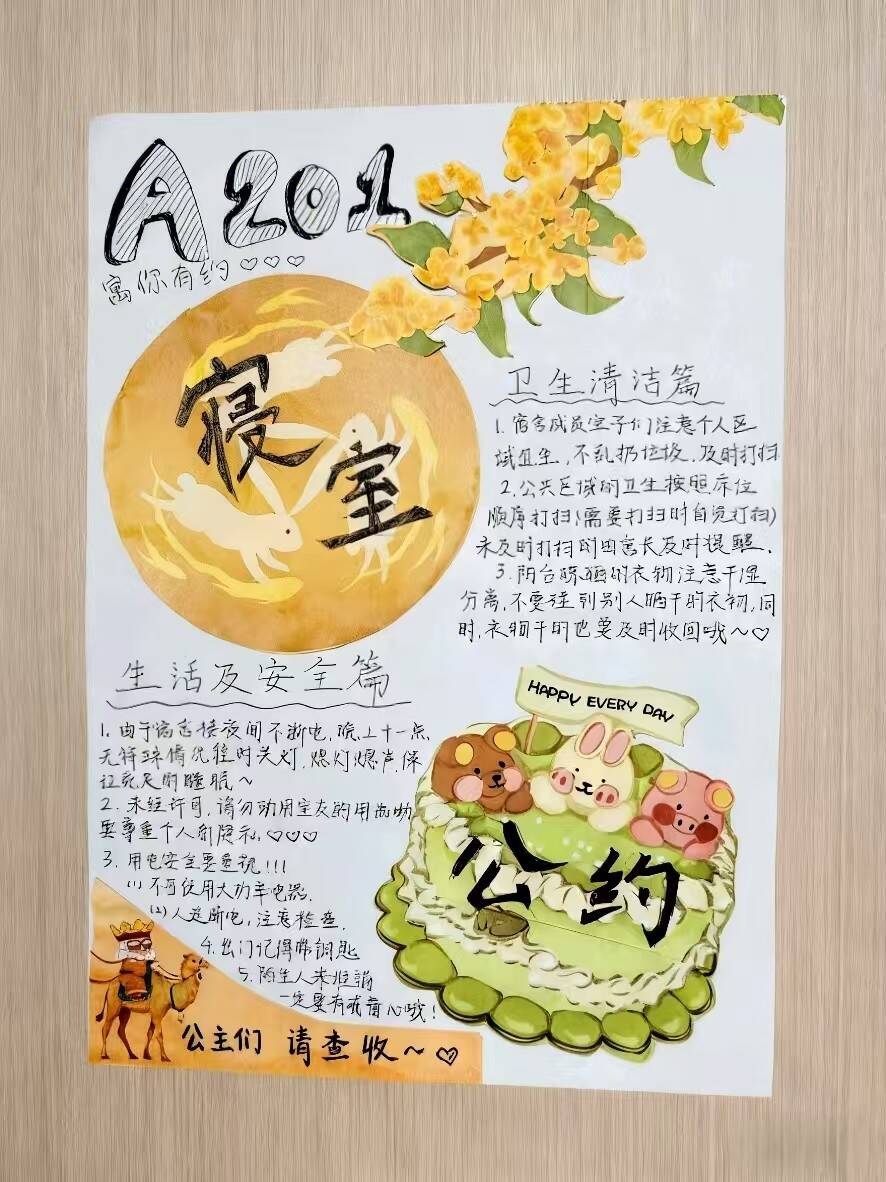 A201
寓你有约♡♡♡
寝室
卫生清洁篇
1. 宿舍成员宝子们注意个人区
域卫生,不乱扔垃圾,及时打扫
2.公共区域的卫生按照床位
顺序打扫(需要打扫时自觉打扫)
未及时打扫的由宿长及时提醒.
3.阳台晾晒的衣物注意干湿
分离,不要碰到别人晒干的衣物,同
时,衣物干的也要及时收回哦~♡
生活及安全篇
1.由于宿舍楼夜间不断电,晚上十一点
无特殊情况准时关灯,熄灯熄声,保
证充足的睡眠~
2.未经许可,请勿动用室友的用品物
要尊重个人的隐私,♡♡♡
3.用电安全要重视!!!
(1)不可使用大功率电器.
(2)人走断电,注意检查.
4.出门记得带钥匙
5.陌生人来推销
一定要有戒备心哦!
HAPPY EVERY DAY
公约
公主们 请查收~♡